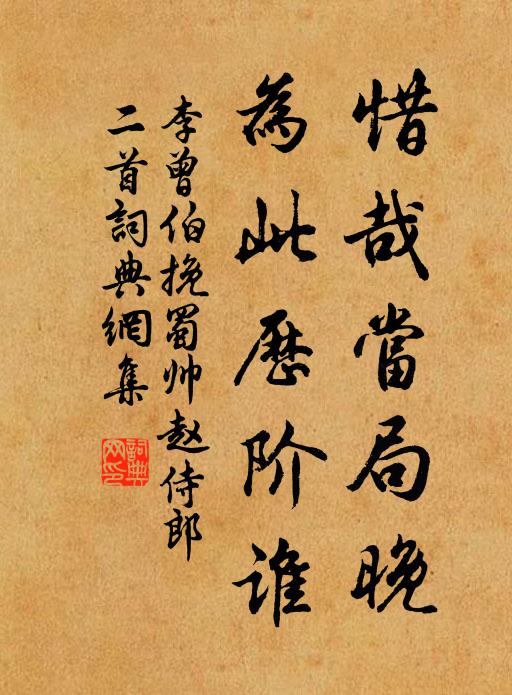 惜哉當局晚
為此歷阶誰
李曾伯挽蜀帅赵侍郎
二首詞典網集
詞典網印